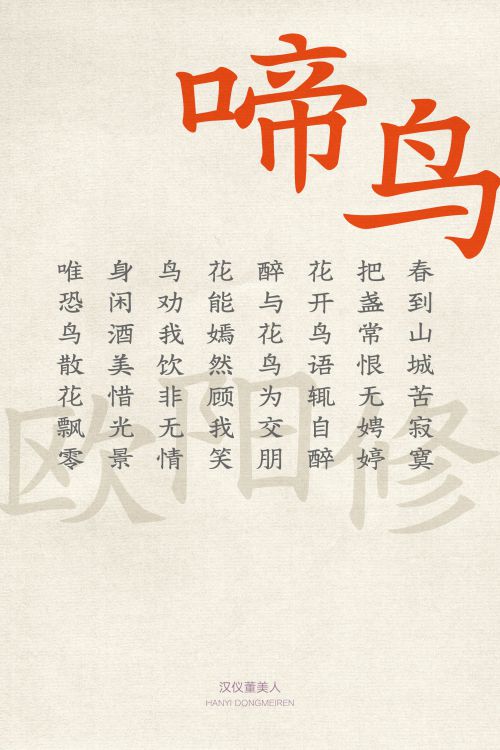 啼鸟
春到山城苦寂寞
把盏常恨无娉婷
花开鸟语辄自醉
醉与花鸟为交朋
花能嫣然顾我笑
鸟劝我饮非无情
身闲酒美惜光景
唯恐鸟散花飘零
欧阳修
汉仪董美人
HANYI DONGMEIREN